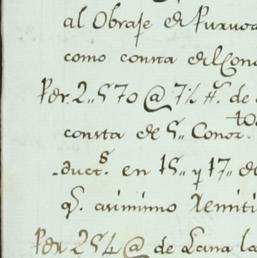 al Obraje de Puruca
como consta del Con
Per. 2..570 @ 7½ #. de
consta de 5.. Conoz.tos
duct.s en 15.. y 17.. de
q.e asimismo Remiti
Per 254 @ de Lana la